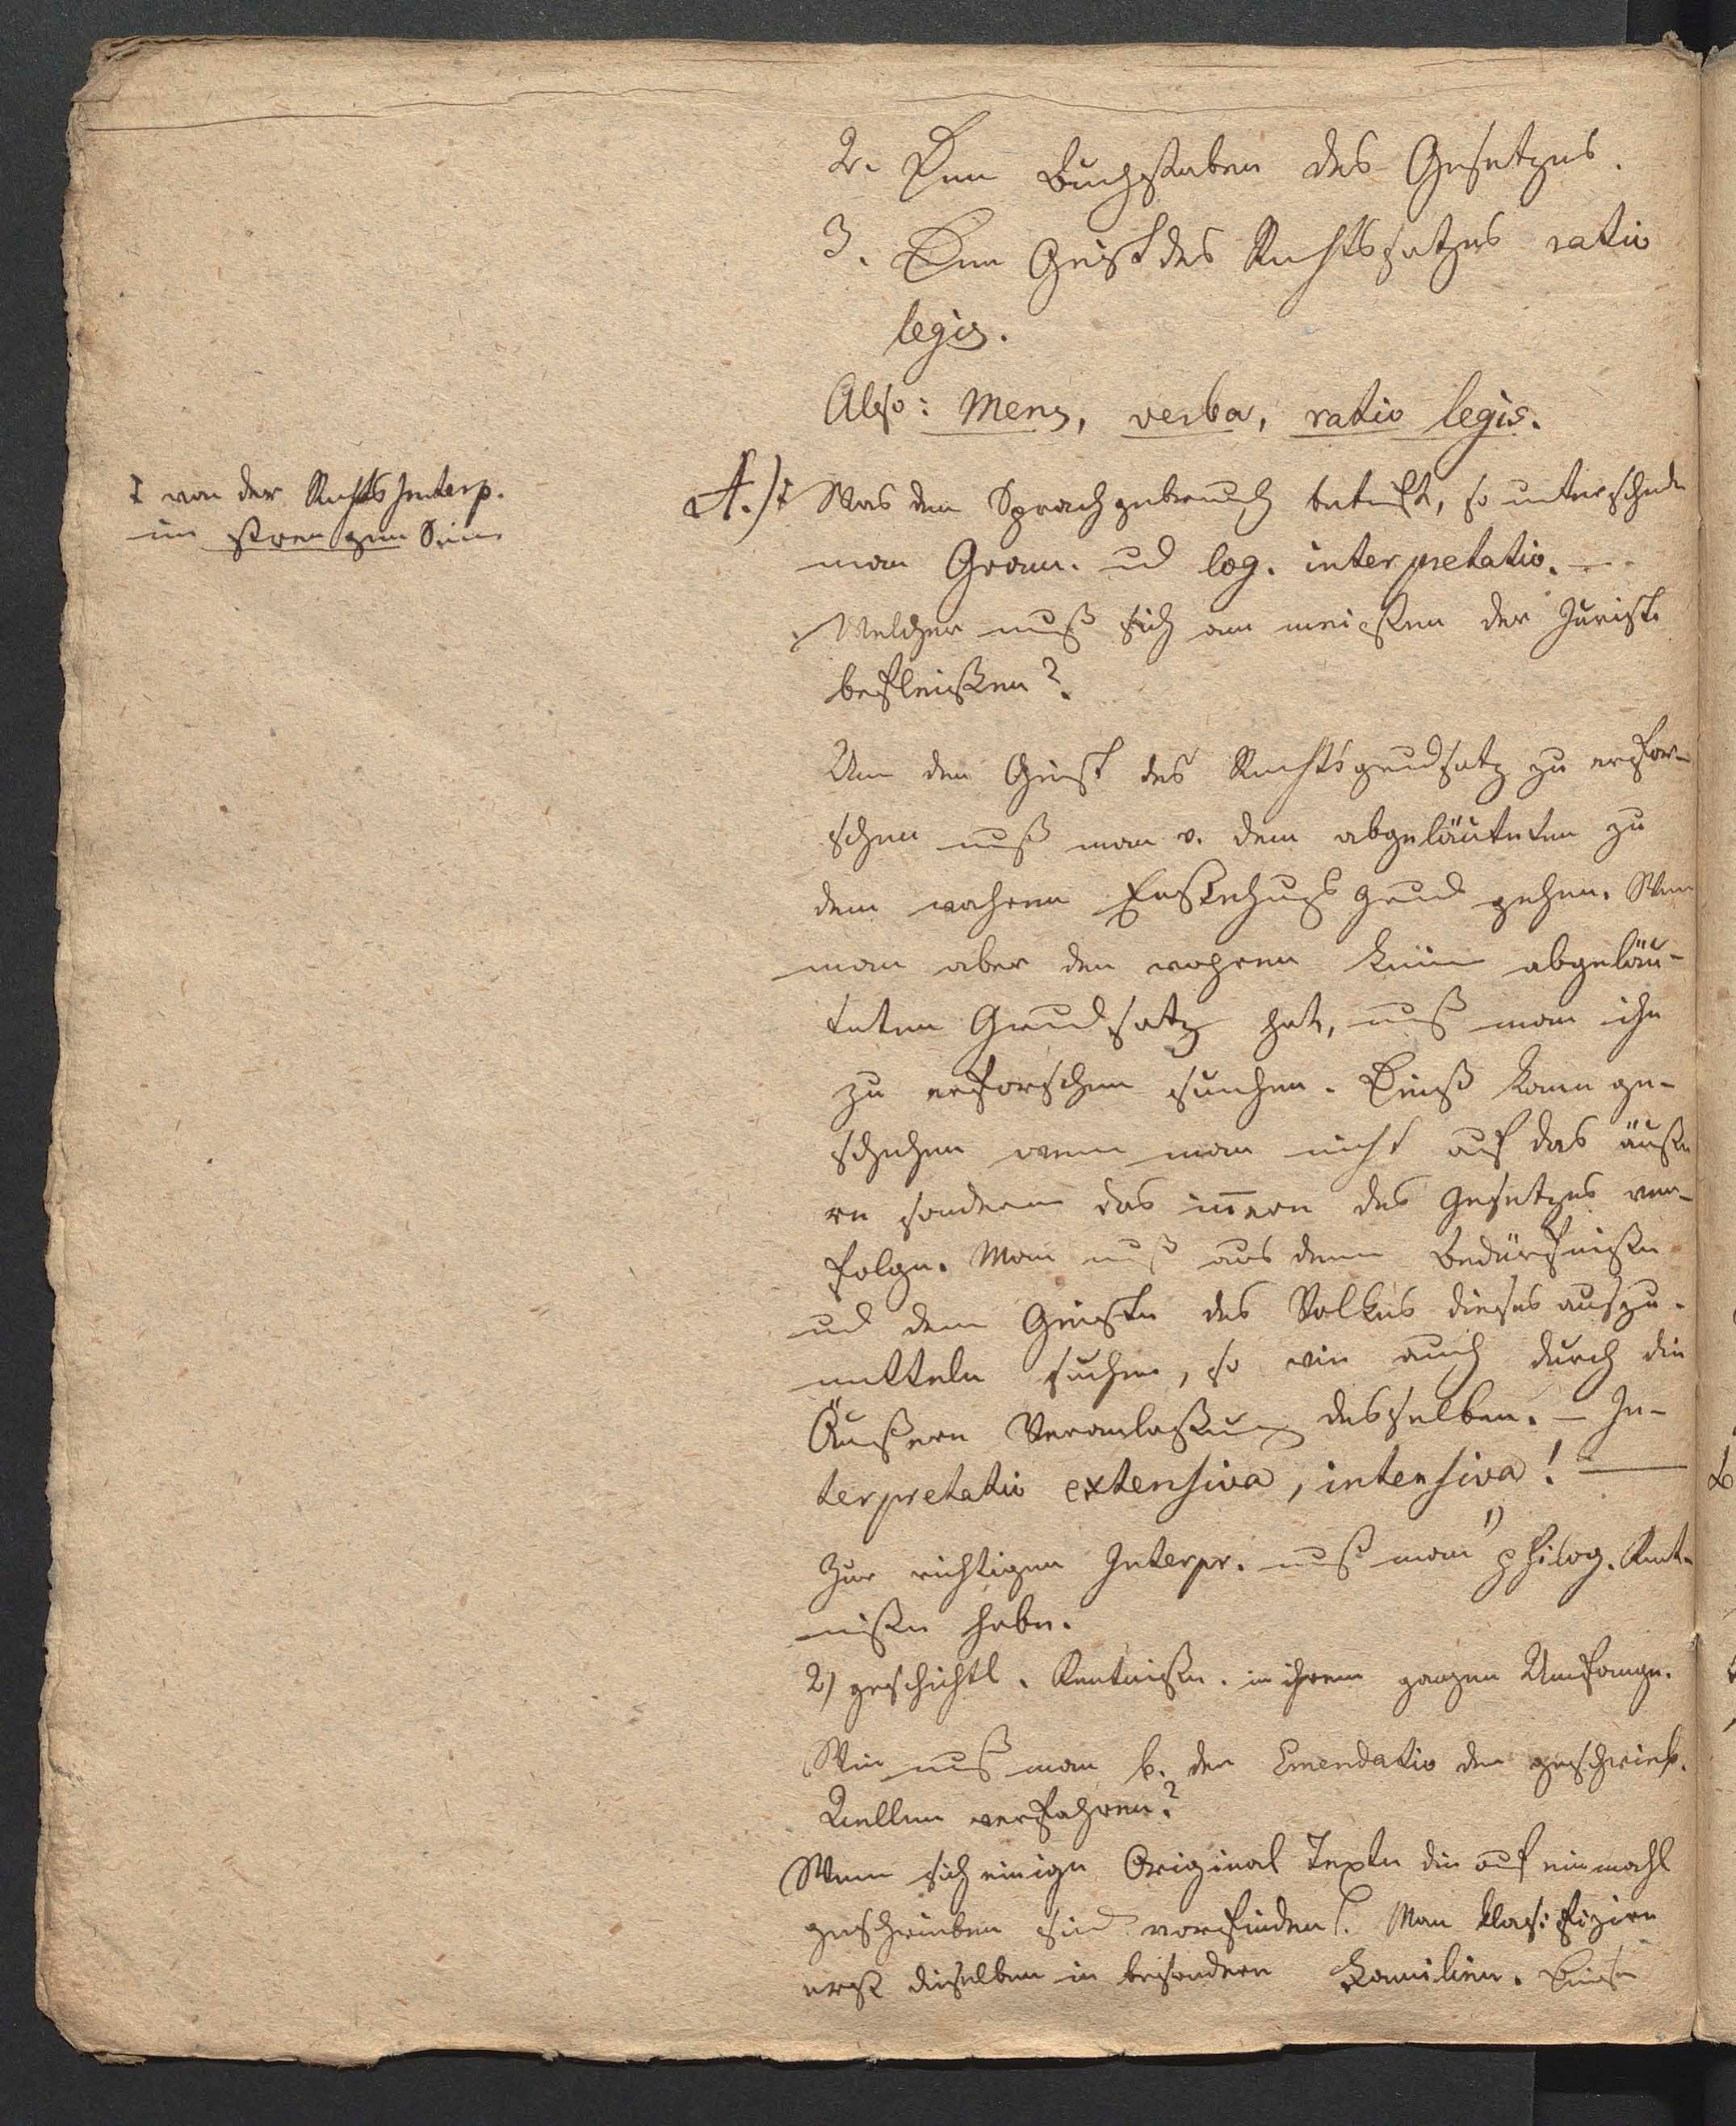 2. Den Buchstaben des Gesetzes.
3. Den Geist des Rechtssatzes ratio
legis.
Also: Mens, verba, ratio legis.
‡ von der Rechts Interp.
im strengen Sinne
A.) ‡ Was den Sprachgebrauch betrifft, so unterscheide
man Gram. und log. interpretatio. —
Welcher muß sich am meisten der Jurist
befleißen?
Um den Geist des Rechtsgrundsatz zu erfor-
schen muß man v. dem abgeläuteten zu
dem wahren Entstehungs Grund gehen. Wenn
man aber den wahren keinen abgeläu-
teten Grundsatz hat, muß man ihn
zu erforschen suchen. Dieß kann ge-
schehen wenn man nicht auf das äuße
re sondern das innern des Gesetzes ver-
folge. Man muß aus dem Bedürfniße
und dem Geiste des Volkes dieses auszu-
mitteln suchen, so wie auch durch die
Äußern Veranlaßung desselben. — In-
terpretatio extensiva, intensiva! —
Zur richtigen Interpr. muß man 1) philog. Kent-
niße habe.
2) geschichtl. Kentniße. in ihrem ganzen Umfange.
Wie muß man b. der Emendatio der geschrieb.
Quellen verfahren?
Wenn sich einige Original Texte die auf einmahl
geschrieben sind vorfinden. Man klasifizire
erst dieselben in besondere Familien. Diese